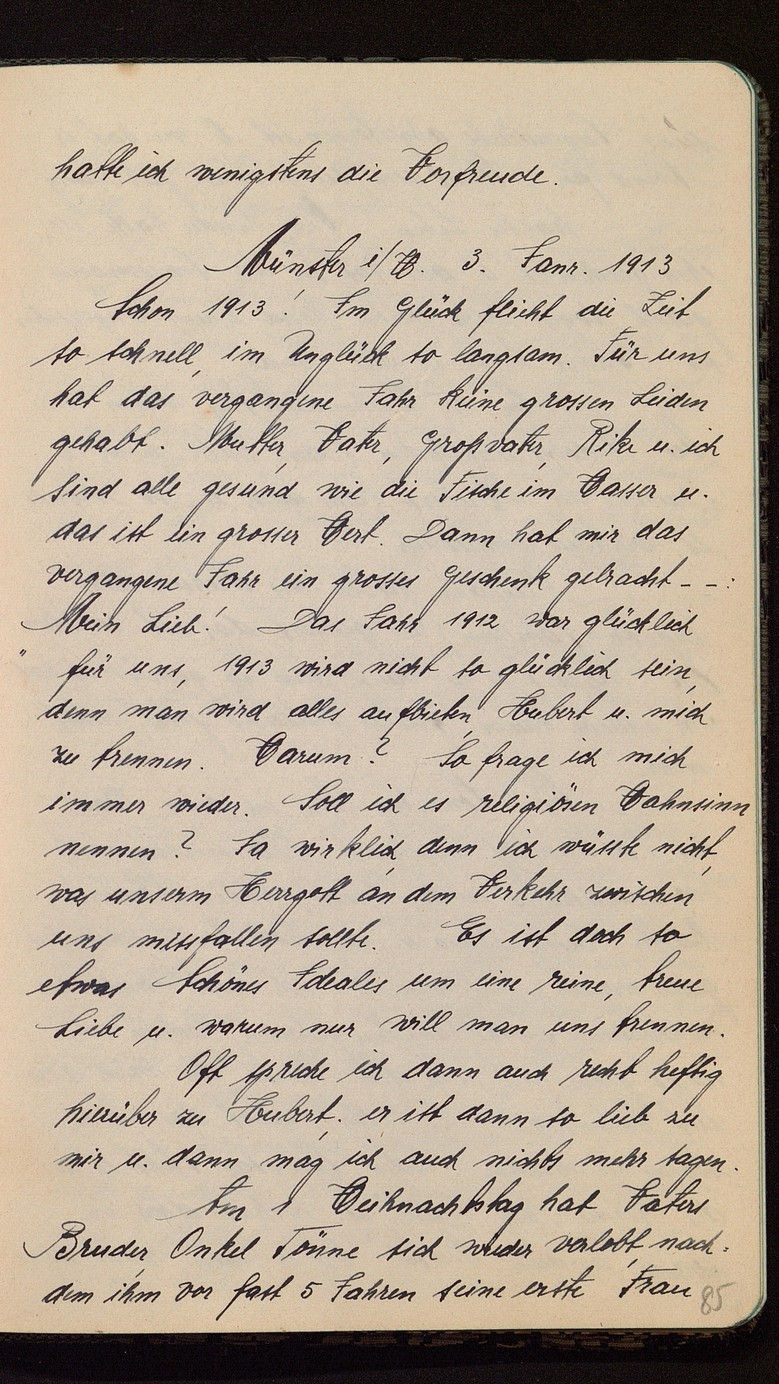 hatte ich wenigstens die Vorfreude.
Münster i/W. 3. Janr. 1913
Schon 1913! Im Glück flieht die Zeit
so schnell, im Unglück so langsam. Für uns
hat das vergangene Jahr keine grossen Leiden
gehabt. Mutter, Vater, Großvater, Rike u. ich
sind alle gesund wie die Fische im Wasser u.
das ist ein grosser Wert. Dann hat mir das
vergangene Jahr ein grosses Geschenk gebracht - - :
Mein Lieb! Das Jahr 1912 war glücklich
" für uns, 1913 wird nicht so glücklich sein,
denn man wird alles aufbieten, Hubert u. mich
zu trennen. Warum? So frage ich mich
immer wieder. Soll ich es religiösen Wahnsinn
nennen? Ja wirklich, denn ich wüsste nicht,
was unserm Herrgott an dem Verkehr zwischen
uns missfallen sollte. Es ist doch so
etwas Schönes Ideales um eine reine, treue
Liebe u. warum nur will man uns trennen.
Oft spreche ich dann auch recht heftig
hierüber zu Hubert, er ist dann so lieb zu
mir u. dann mag ich auch nichts mehr sagen.
Am 1 Weihnachtstag hat Vaters
Bruder, Onkel Tönne sich wieder verlobt, nach-
dem ihm vor fast 5 Jahren seine erste Frau
85